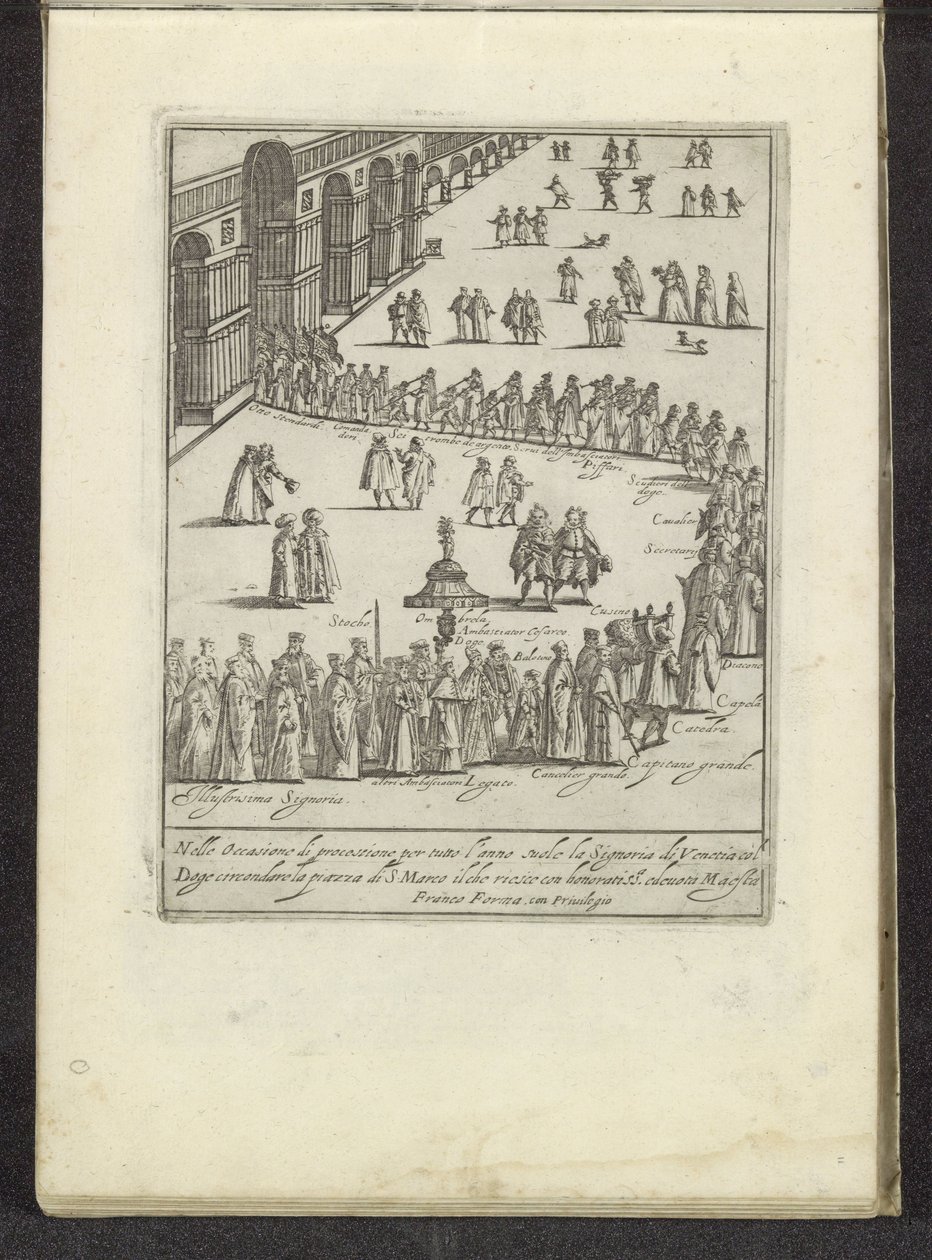 Otto Stendardi.
Comanda
dori.
Sei trombe de argento.
Serui dell'Imbasciatori
Piffari.
Scudieri dell
doge.
Caualier
Secretarij
Stocho.
Ombrela
Ambasciator Cesareo.
Doge
Balotino
Cusino
Diacono
Capela
Catedra.
Capitano grande.
Cancelier grando.
Legato.
altri Ambasciatori
Illustrisima Signoria.
Nelle Occasione di processione per tutto l'anno suole la Signoria di Venetia col
Doge circondare la piazza di S. Marco il che riesce con honoratiss.ª, e deuota Maesta
Franco Forma, con Priuilegio